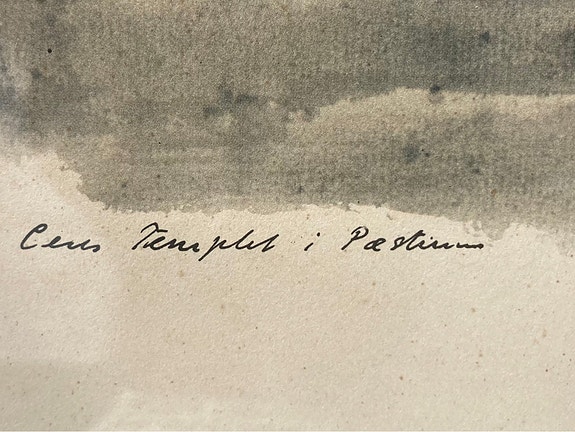 Ceres Templet i Pæstum